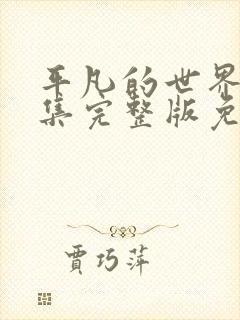 平凡的世界
集完整版免
贾巧萍